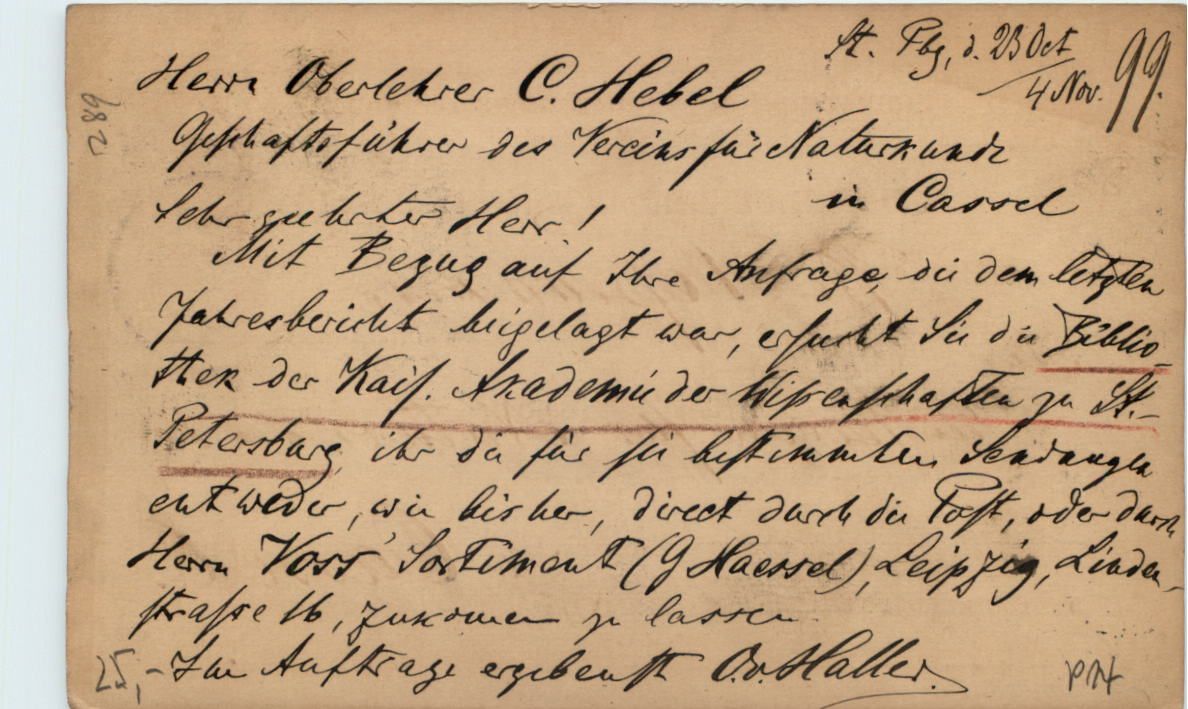 St. Pbg, d. 23 Oct
4 Nov. 99.
Herrn Oberlehrer C. Hebel
Geschäftsführer des Vereins für Naturkunde
in Cassel
Sehr geehrter Herr!
Mit Bezug auf Ihre Anfrage, die dem letzten
Jahresbericht beigelegt war, ersucht Sie die Biblio-
thek der Kais. Akademie der Wissenschaften zu St.-
Petersburg, ihr die für sie bestimmten Sendungen
entweder, wie bisher, direct durch die Post, oder durch
Herrn Voss' Sortiment (G Haessel), Leipzig, Linden-
strasse 16, zukommen zu lassen.
Im Auftrage ergebenst O. v. Haller.
289
25,-